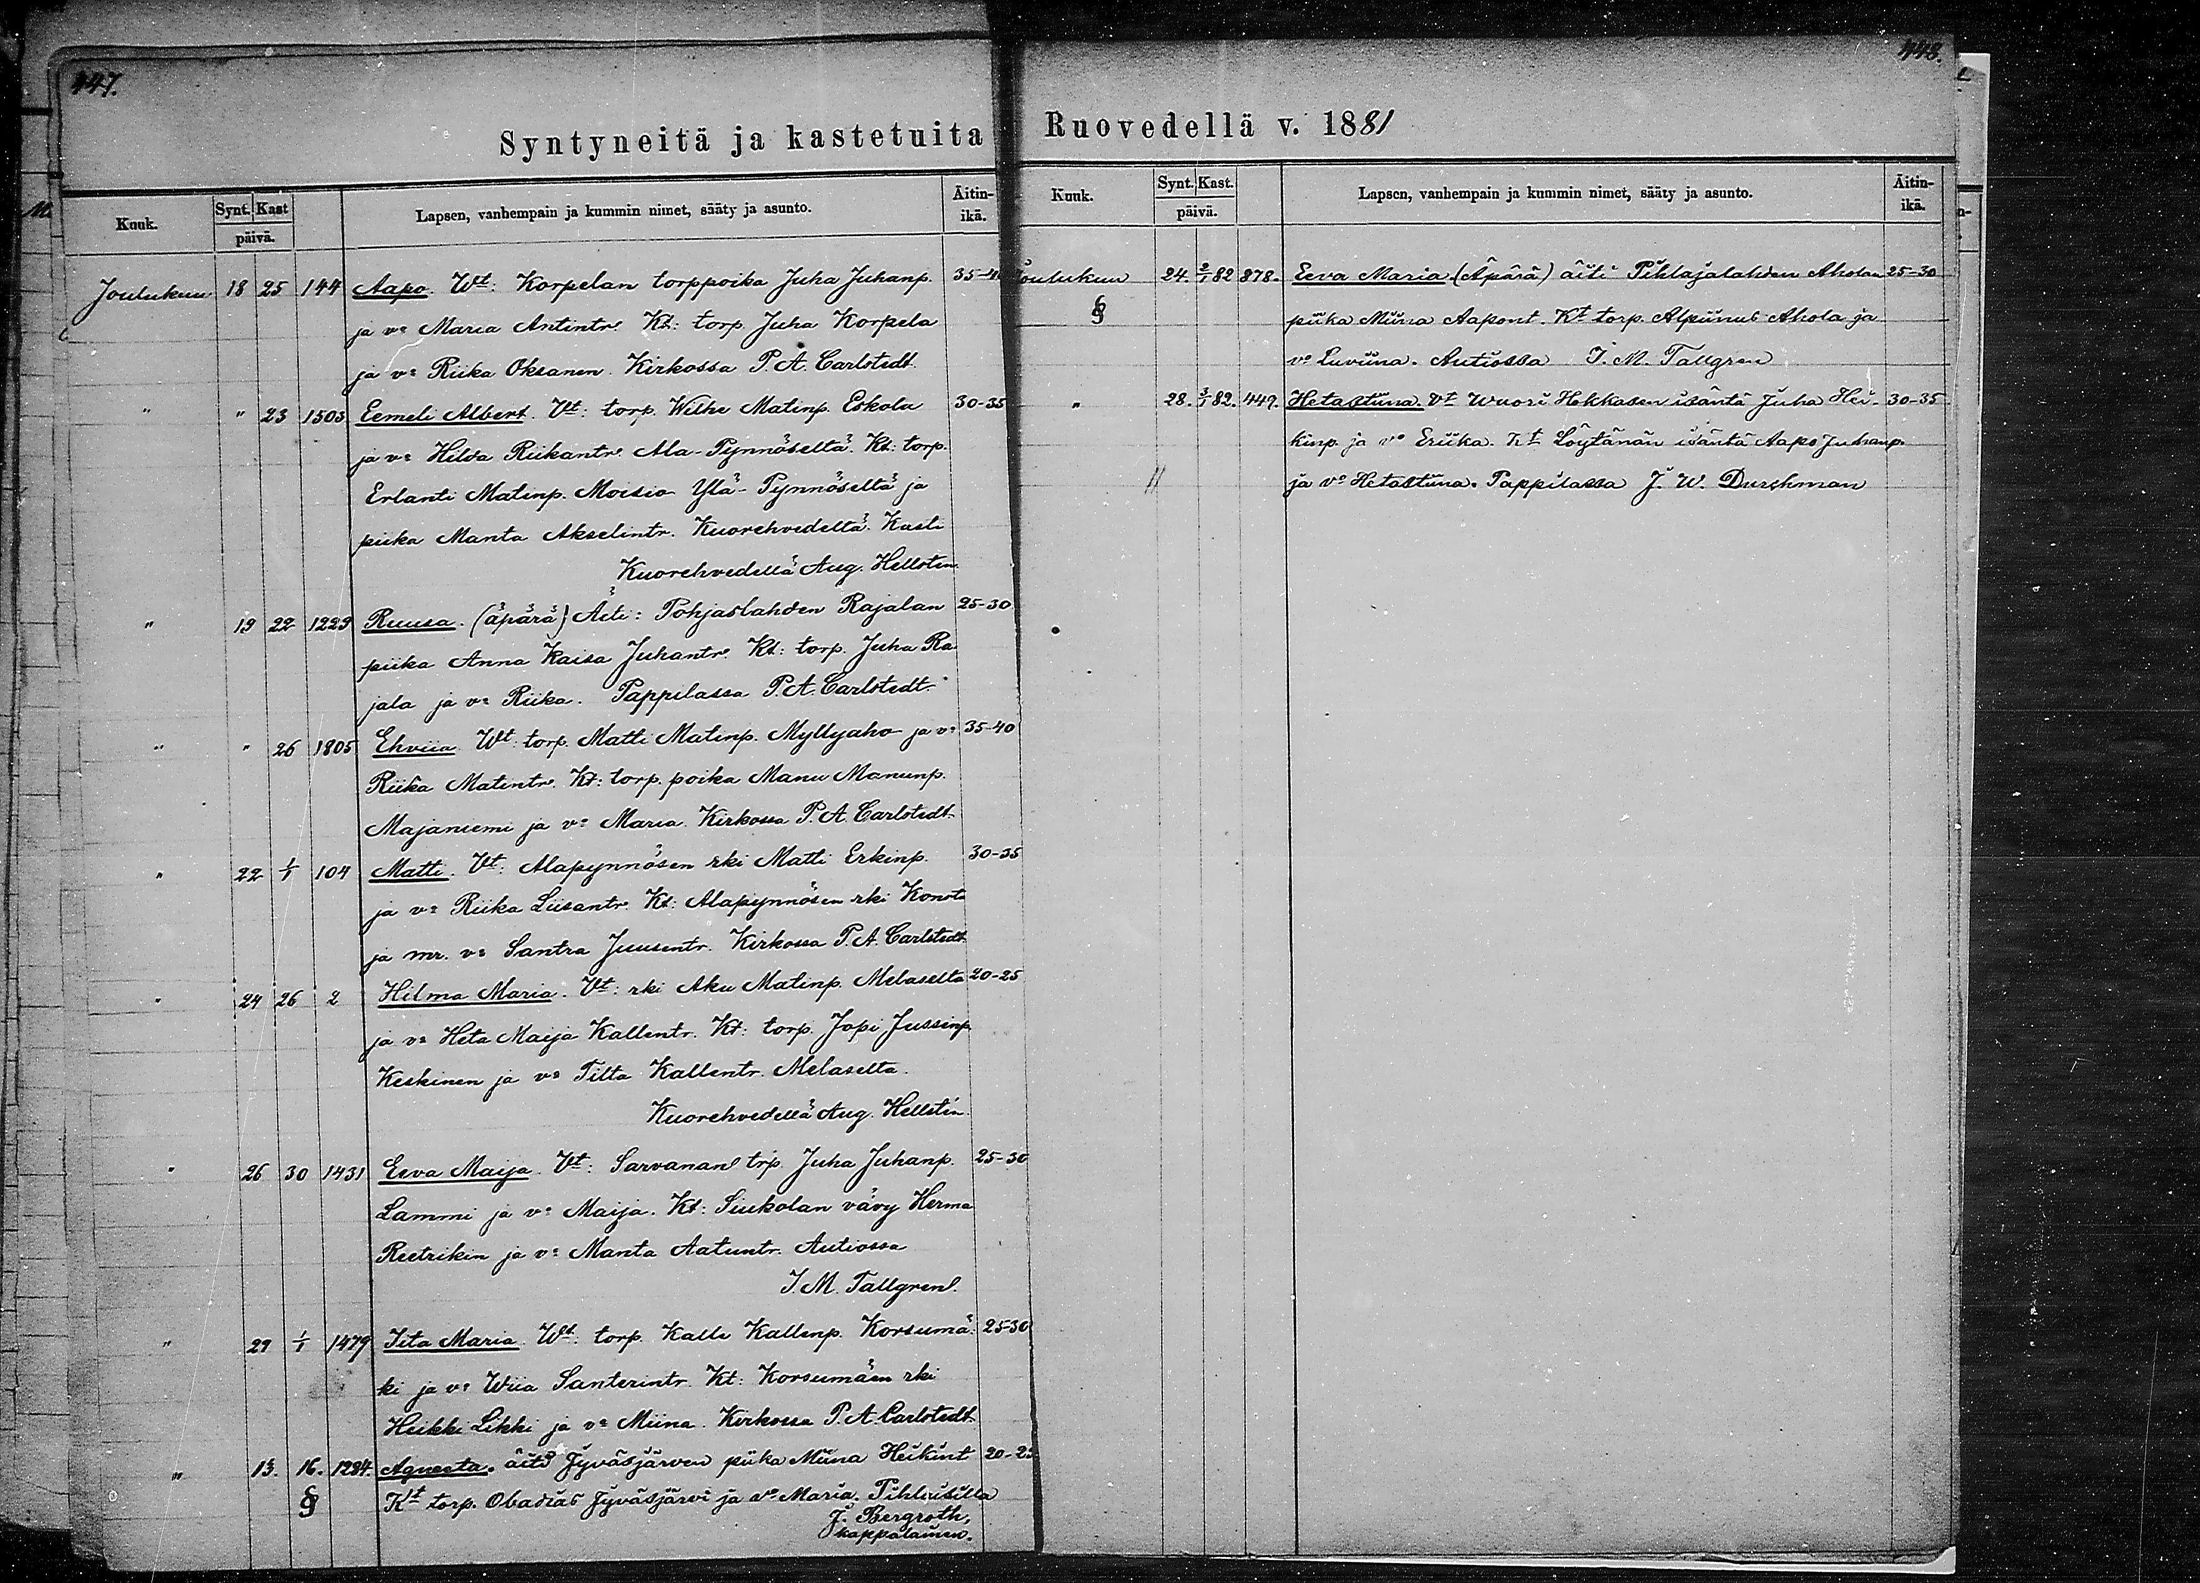 447.
Syntyneitä ja kastetuita
Kuuk. Synt. Kast päivä. Lapsen, vanhempain ja kummin nimet, sääty ja asunto. Äitin-ikä.
Joulukuu 18 25 144 Aapo. Wt: Korpelan torppoika Juha Juhanp. 35-40
ja vo Maria Antintr. Kt: torp. Juha Korpela
ja vo Riika Oksanen. Kirkossa P. A. Carlstedt.
" " 23 1503 Eemeli Albert. Vt: torp. Wilhe Matinp. Eskola 30-35
ja vo Hilda Riikantr. Ala-Pynnöseltä. Kt: torp.
Erlanti Matinp. Moisio Ylä-Pynnöseltä ja
piika Manta Akselintr. Kuorehvedeltä. Kasti
Kuorehvedellä Aug. Hellstén.
" 19 22 1229 Ruusa. (äpärä) Äiti: Pohjaslahden Rajalan 25-30
piika Anna Kaisa Juhantr. Kt: torp. Juha Ra
jala ja vo Riika. Pappilassa P. A. Carlstedt.
" " 26 1805 Ehviia. Wt: torp. Matti Matinp. Myllyaho ja vo 35-40
Riika Matintr. Kt: torp. poika Manu Manunp.
Majaniemi ja vo Maria. Kirkossa P. A. Carlstedt
" 22 1/1 104 Matti. Vt: Alapynnösen rki Matti Erkinp. 30-35
ja vo Riika Liisantr. Kt: Alapynnösen rki Konsta
ja mr. vo Santra Juusentr. Kirkossa P. A. Carlstedt
" 24 26 2 Hilma Maria. Vt: rki Aku Matinp. Melaselta 20-25
ja vo Heta Maija Kallentr. Kt: torp. Jopi Jussinp
Keskinen ja vo Tilta Kallentr. Melaselta.
Kuorehvedellä Aug. Hellstén.
" 26 30 1431 Eeva Maija. Vt: Sarvanan trp. Juha Juhanp. 25-30
Lammi ja vo Maija. Kt: Siukolan vävy Herma
Reetrikin ja vo Manta Aatuntr. Autiossa
I. M. Tallgren.
" 29 1/1 1479 Iita Maria. Wt: torp. Kalle Kallenp. Korsumä 25-30
ki ja vo Wiia Santerintr. Kt: Korsumäen rki
Heikki Likki ja vo Miina. Kirkossa P. A. Carlstedt
" 13. 16. 1284. Agneeta. äiti Jyväsjärven piika Miina Heikint 20-25
§ Kt torp. Obadias Jyväsjärvi ja vo Maria.
J. Bergroth,
kappalainen.
448.
Ruovedellä v. 1881
Kuuk. Synt. Kast. päivä. Lapsen, vanhempain ja kummin nimet, sääty ja asunto. Äitin-ikä.
Joulukuu 24. 2/1 82 878. Eeva Maria (Äpärä) äiti Pihlajalahden Aholan 25-30
§ piika Miina Aapont. Kt torp. Alpiinus Ahola ja
vo Luviina. Autiossa I. M. Tallgren
" 28. 3/1 82. 449. Hetastiina. Vt Wuori Hokkasen isäntä Juha Hei- 30-35
kinp. ja vo Eriika. Kt Löytänän isäntä Aapo Juhanp.
ja vo Hetastiina. Pappilassa J. W. Durchman